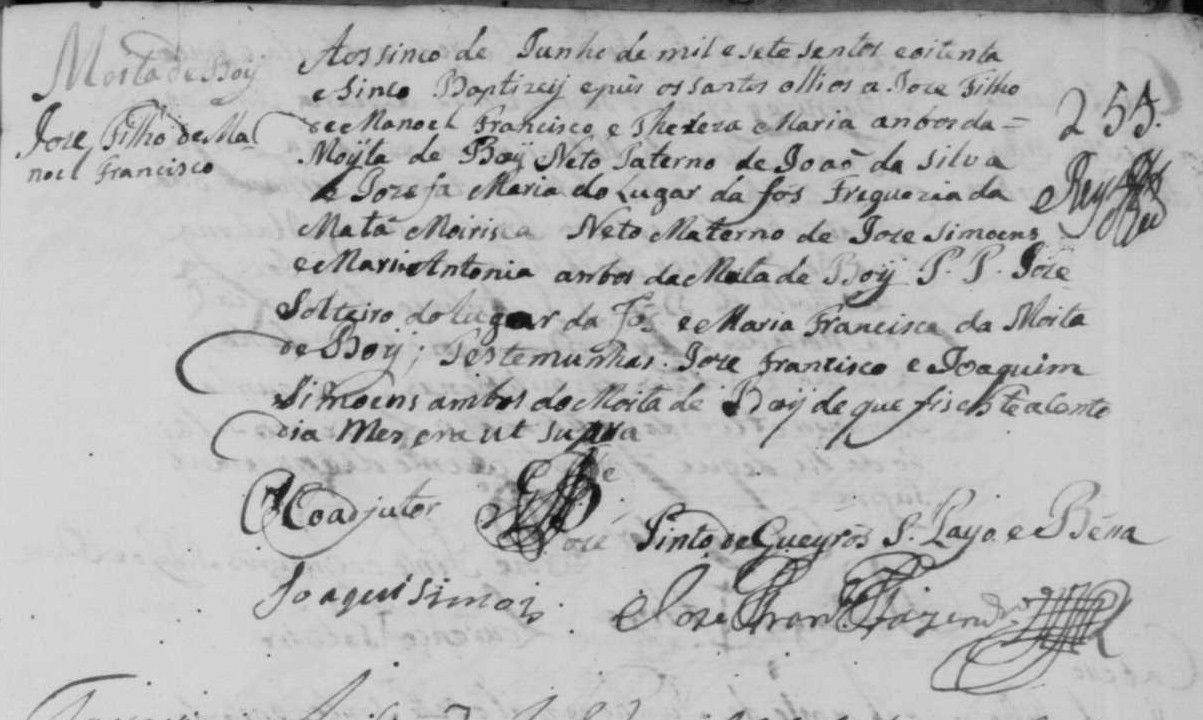 Moita de Boÿ
Joze Filho de Ma=
noel Francisco
Aos sinco de Junho de mil e sete sentos e oitenta
e Sinco Baptizeÿ e pûs os santos ollios a Joze Filho
de Manoel Francisco e Thereza Maria anbos da =
Moÿta de Boÿ Neto Paterno de Joaõ da Silva
e Jozefa Maria do Lugar da fós Freguezia da
Mata Moirisca Neto Materno de Joze Simoens
e Maria Antonia ambos da Moita de Boÿ P. P. Joze
Solteiro do lugar da Fós e Maria Francisca da Moita
de Boÿ; Testemunhas. Joze Francisco e Joaquim
Simoens ambos do Moita de Boÿ de que fis este acento
dia Mez, era ut supra
255.
Reÿ
O Coadjutor
Joze Pinto de Gueyrós S. Payo e Béna
Joaqui Simois
Joze Fran